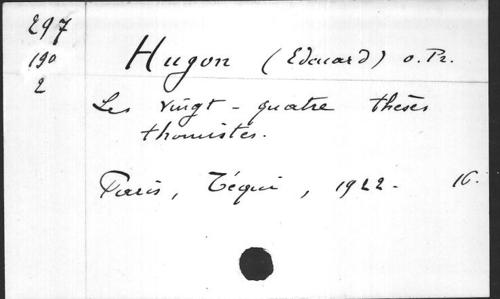 297
190
2
Hugon (Edouard) o. Pr.
Les vingt-quatre thèses
thomistes.
Paris, Téqui, 1922- 16.